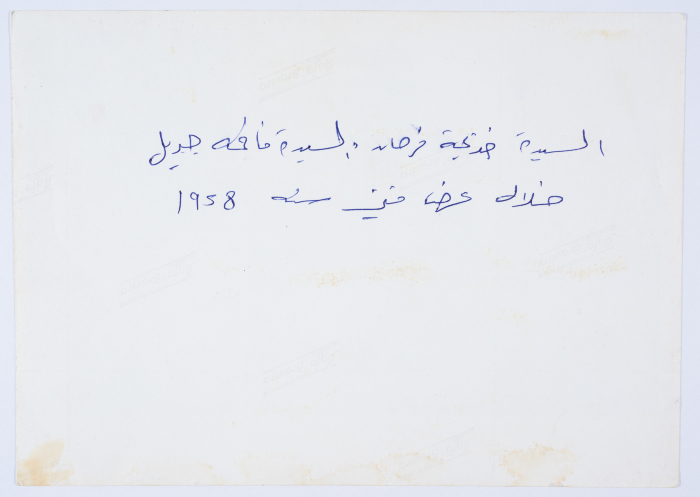 السيدة خديجة فرحات والسيدة فاطمة جبريل
خلال عرض فني سنه 1958